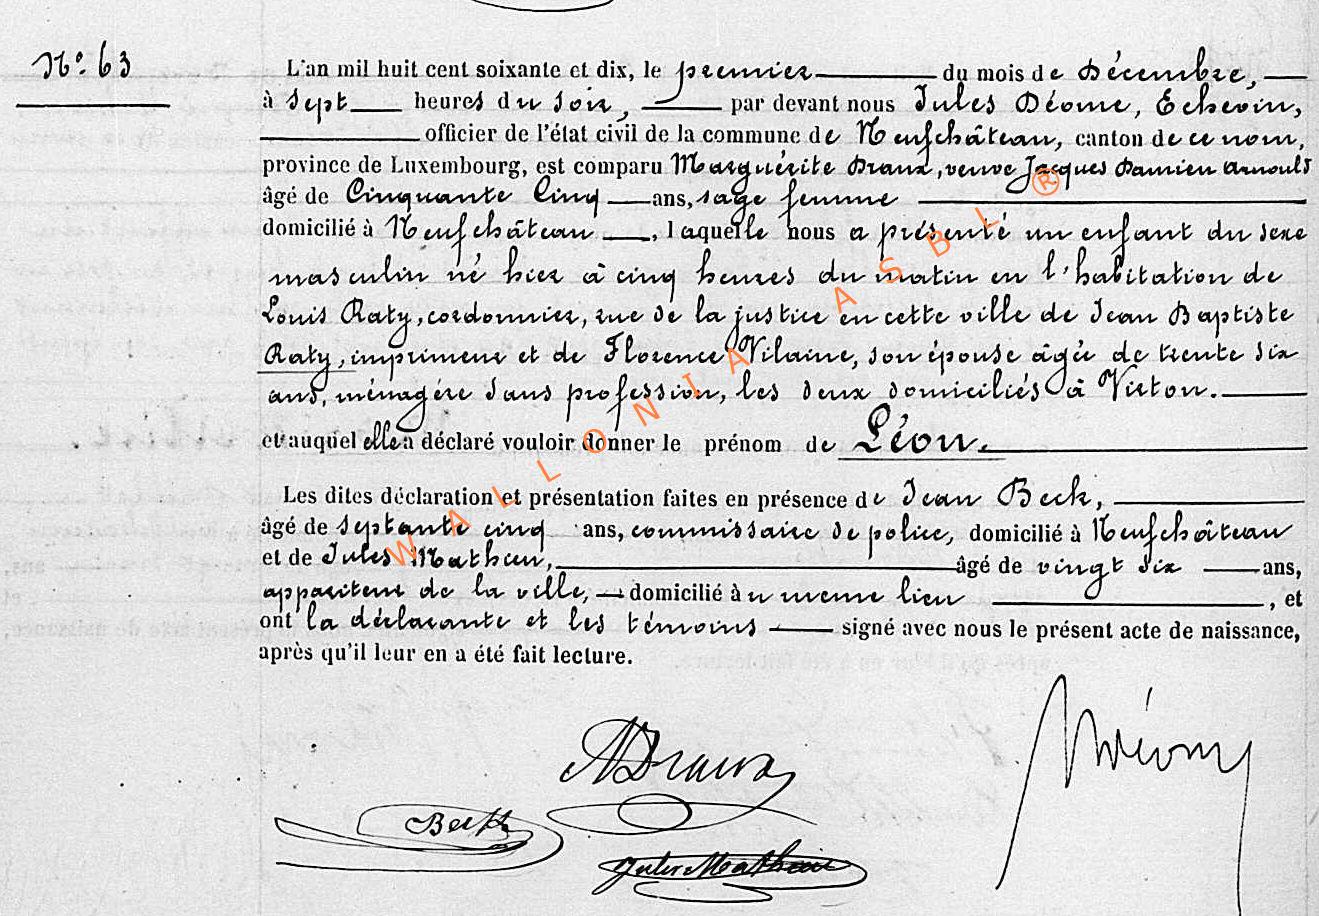 N.° 63
L'an mil huit cent soixante et dix, le premier du mois de Décembre,
à sept heures du soir, par devant nous Jules Déome, Echevin,
officier de l'état civil de la commune de Neufchâteau, canton de ce nom,
province de Luxembourg, est comparu Marguérite Draux, veuve Jacques Damien Arnould
âgé de Cinquante Cinq ans, sage femme
domicilié à Neufchâteau, laquelle nous a présenté un enfant du sexe
masculin né hier à cinq heures du matin en l'habitation de
Louis Raty, cordonnier, rue de la justice en cette ville de Jean Baptiste
Raty, imprimeur et de Florence Vilaine, son épouse âgée de trente six
ans, ménagère sans profession, les deux domiciliés à Virton.
et auquel elle a déclaré vouloir donner le prénom de Léon.
Les dites déclaration et présentation faites en présence de Jean Beck,
âgé de septante cinq ans, commissaire de police, domicilié à Neufchâteau
et de Jules Mathieu, âgé de vingt six ans,
appariteur de la ville, domicilié au meme lieu, et
ont la déclarante et les témoins signé avec nous le présent acte de naissance,
après qu'il leur en a été fait lecture.
WALLONIA ASBL ®
Draux
Beck
Jules Mathieu